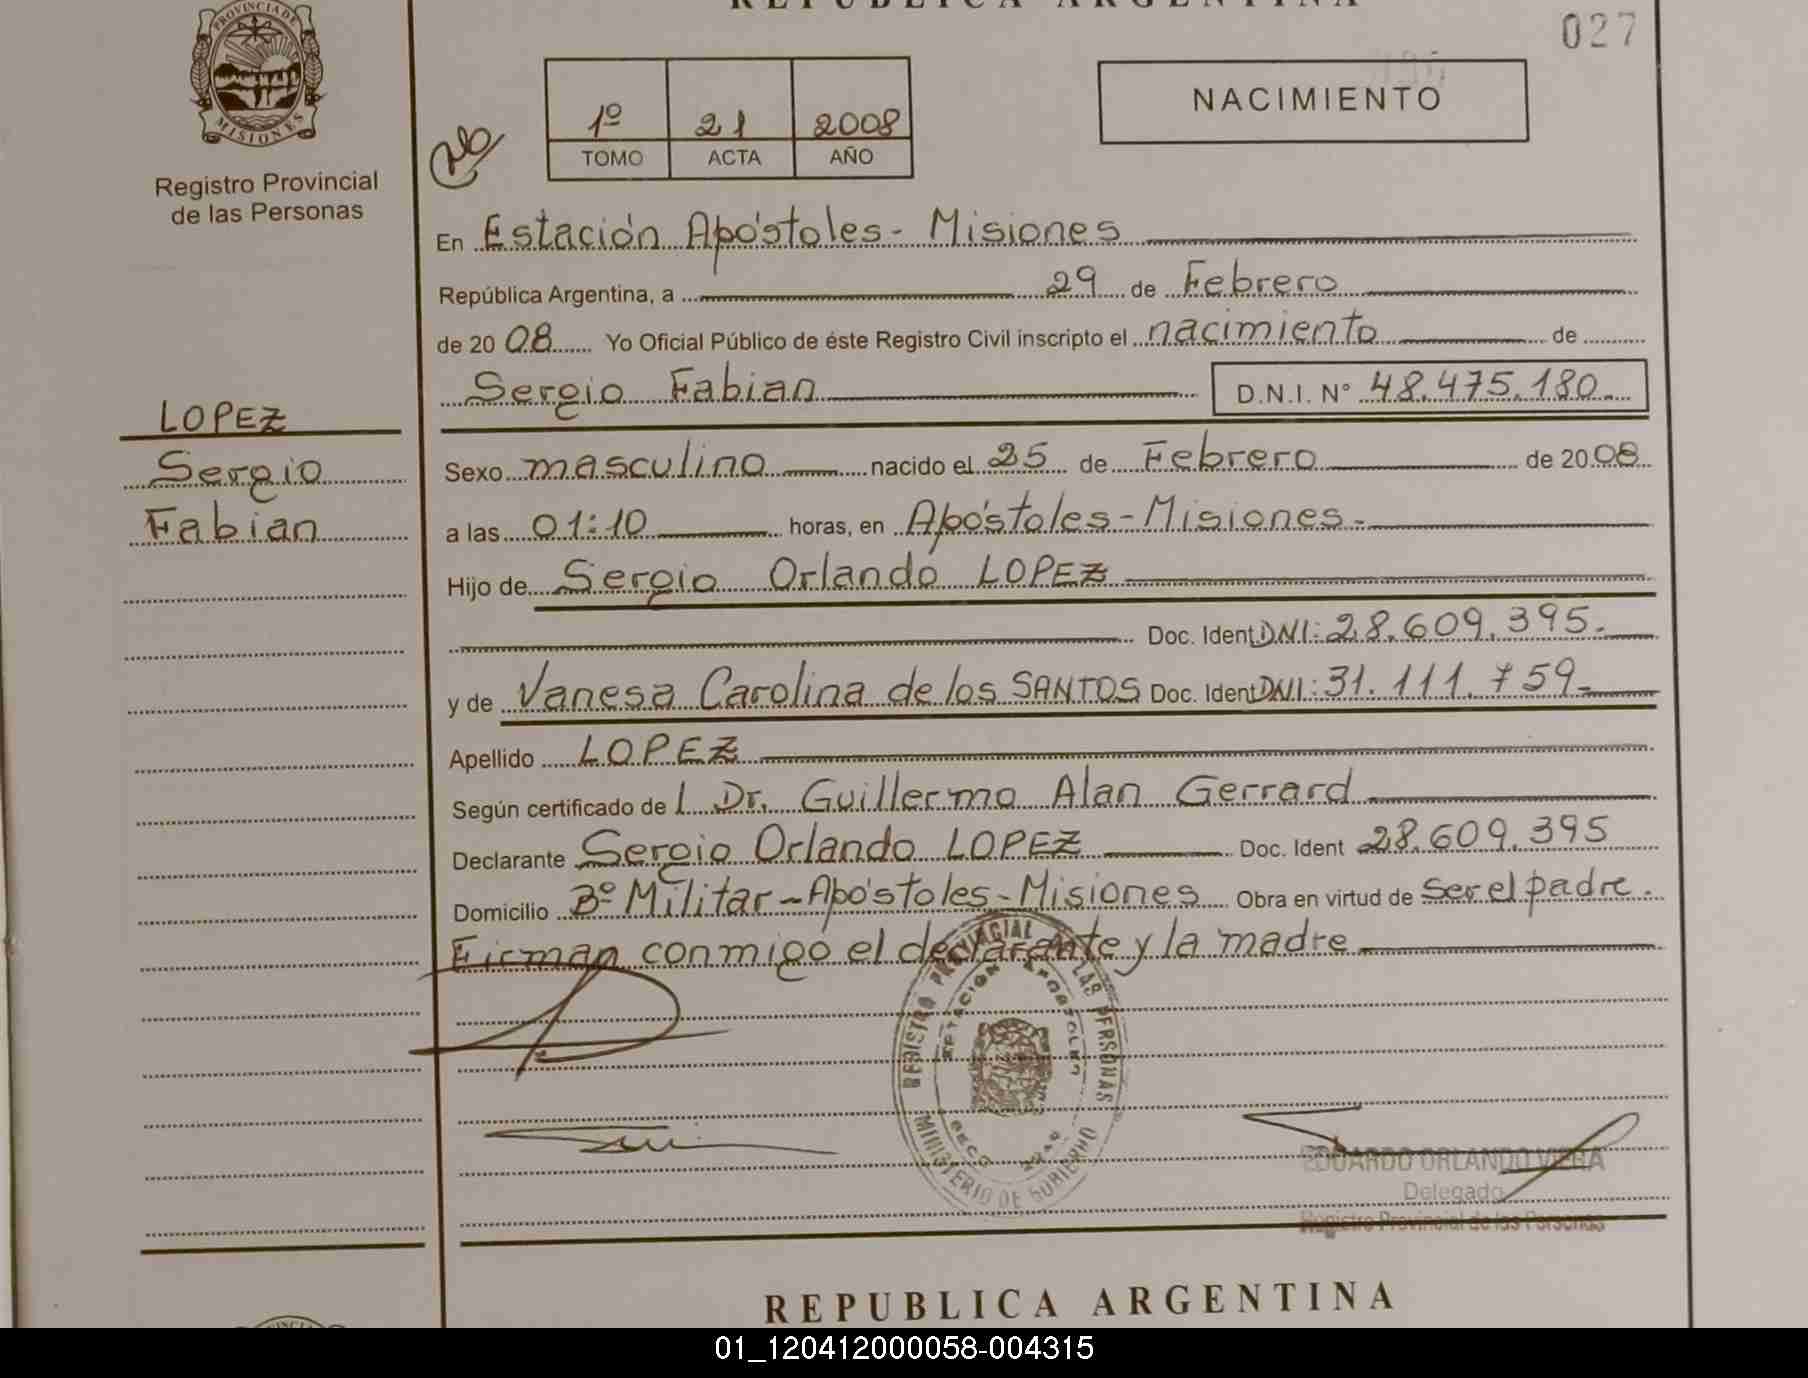 REPUBLICA ARGENTINA
027
PROVINCIA DE
MISIONES
Registro Provincial
de las Personas
1º 21 2008
TOMO ACTA AÑO
NACIMIENTO
En Estación Apóstoles - Misiones
República Argentina, a 29 de Febrero
de 2008 Yo Oficial Público de éste Registro Civil inscripto el nacimiento de
Sergio Fabian D.N.I. N° 48.475.180
LOPEZ
Sergio
Fabian
Sexo masculino nacido el 25 de Febrero de 2008
a las 01:10 horas, en Apóstoles - Misiones -
Hijo de Sergio Orlando LOPEZ
Doc. Ident DNI: 28.609.395.
y de Vanesa Carolina de los SANTOS Doc. Ident DNI: 31.111.759-
Apellido LOPEZ
Según certificado de l Dr. Guillermo Alan Gerrard
Declarante Sergio Orlando LOPEZ Doc. Ident 28.609.395
Domicilio Bº Militar - Apóstoles - Misiones Obra en virtud de ser el padre.
Firman conmigo el declarante y la madre
REGISTRO PROVINCIAL LAS PERSONAS
ESTACION APOSTOLES
MINISTERIO DE GOBIERNO
EDUARDO ORLANDO VIERA
Delegado
Registro Provincial de las Personas
REPUBLICA ARGENTINA
01_120412000058-004315